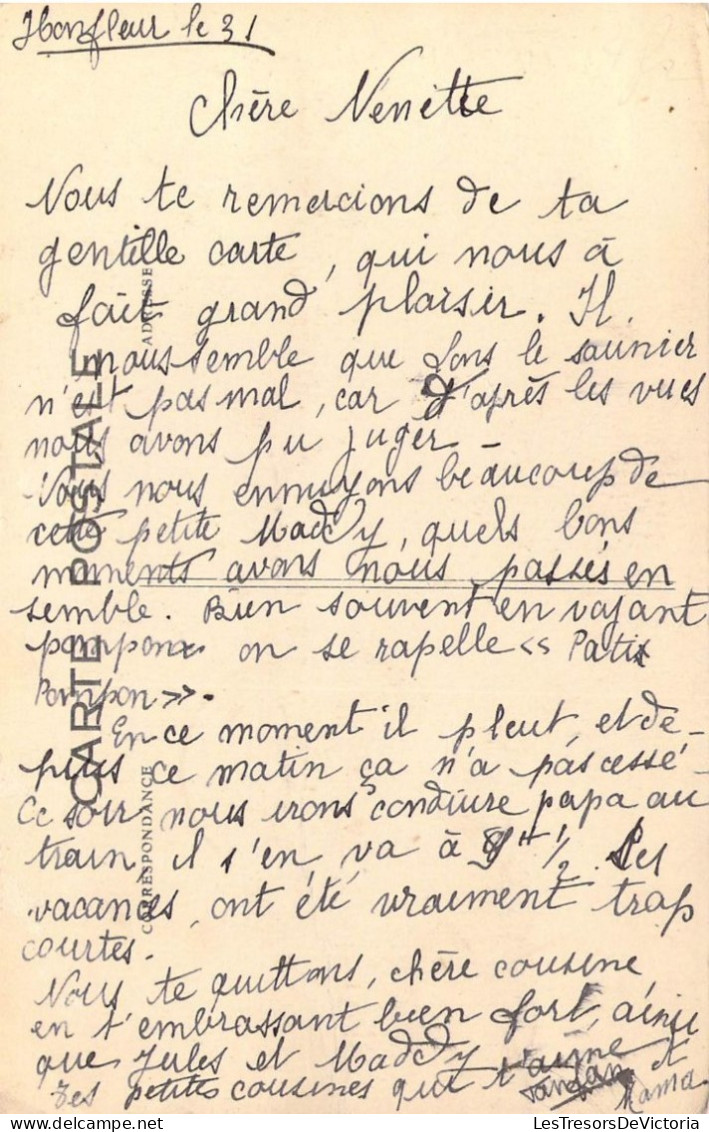 Honfleur le 31
Chère Nénette
Nous te remercions de ta
gentille carte, qui nous à
fait grand plaisir. Il
nous semble que fons le saunier
n'est pas mal, car d'après les vues
nous avons pu juger -
Nous nous ennuyons beaucoup de
cette petite Maddy, quels bons
moments avons nous passés en
semble. Bien souvent en voyant
pompon on se rapelle « Patix
Pompon ».
En ce moment il pleut, et de-
puis ce matin ça n'a pas cessé -
Ce soir nous irons conduire papa au
train, il s'en va à 8H 1/2. Les
vacances, ont été vraiment trop
courtes.
Nous te quittons, chère cousine,
en t'embrassant bien fort, ainsi
que Jules et Maddy
tes petites cousines qui t'aime
et
CARTE POSTALE
CORRESPONDANCE
ADRESSE
LesTresorsDeVictoria.com